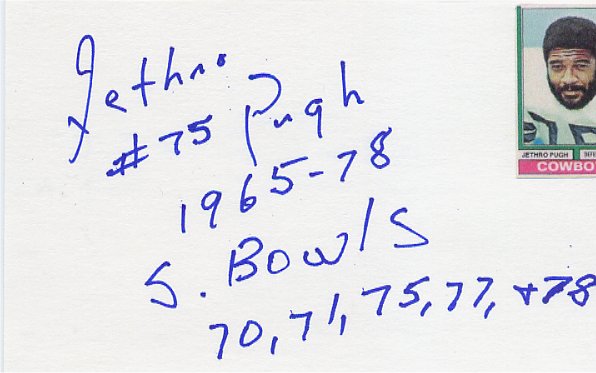 Jethro
Pugh
#75
1965-78
S. Bowls
70, 71, 75, 77, +78
JETHRO PUGH
COWBO